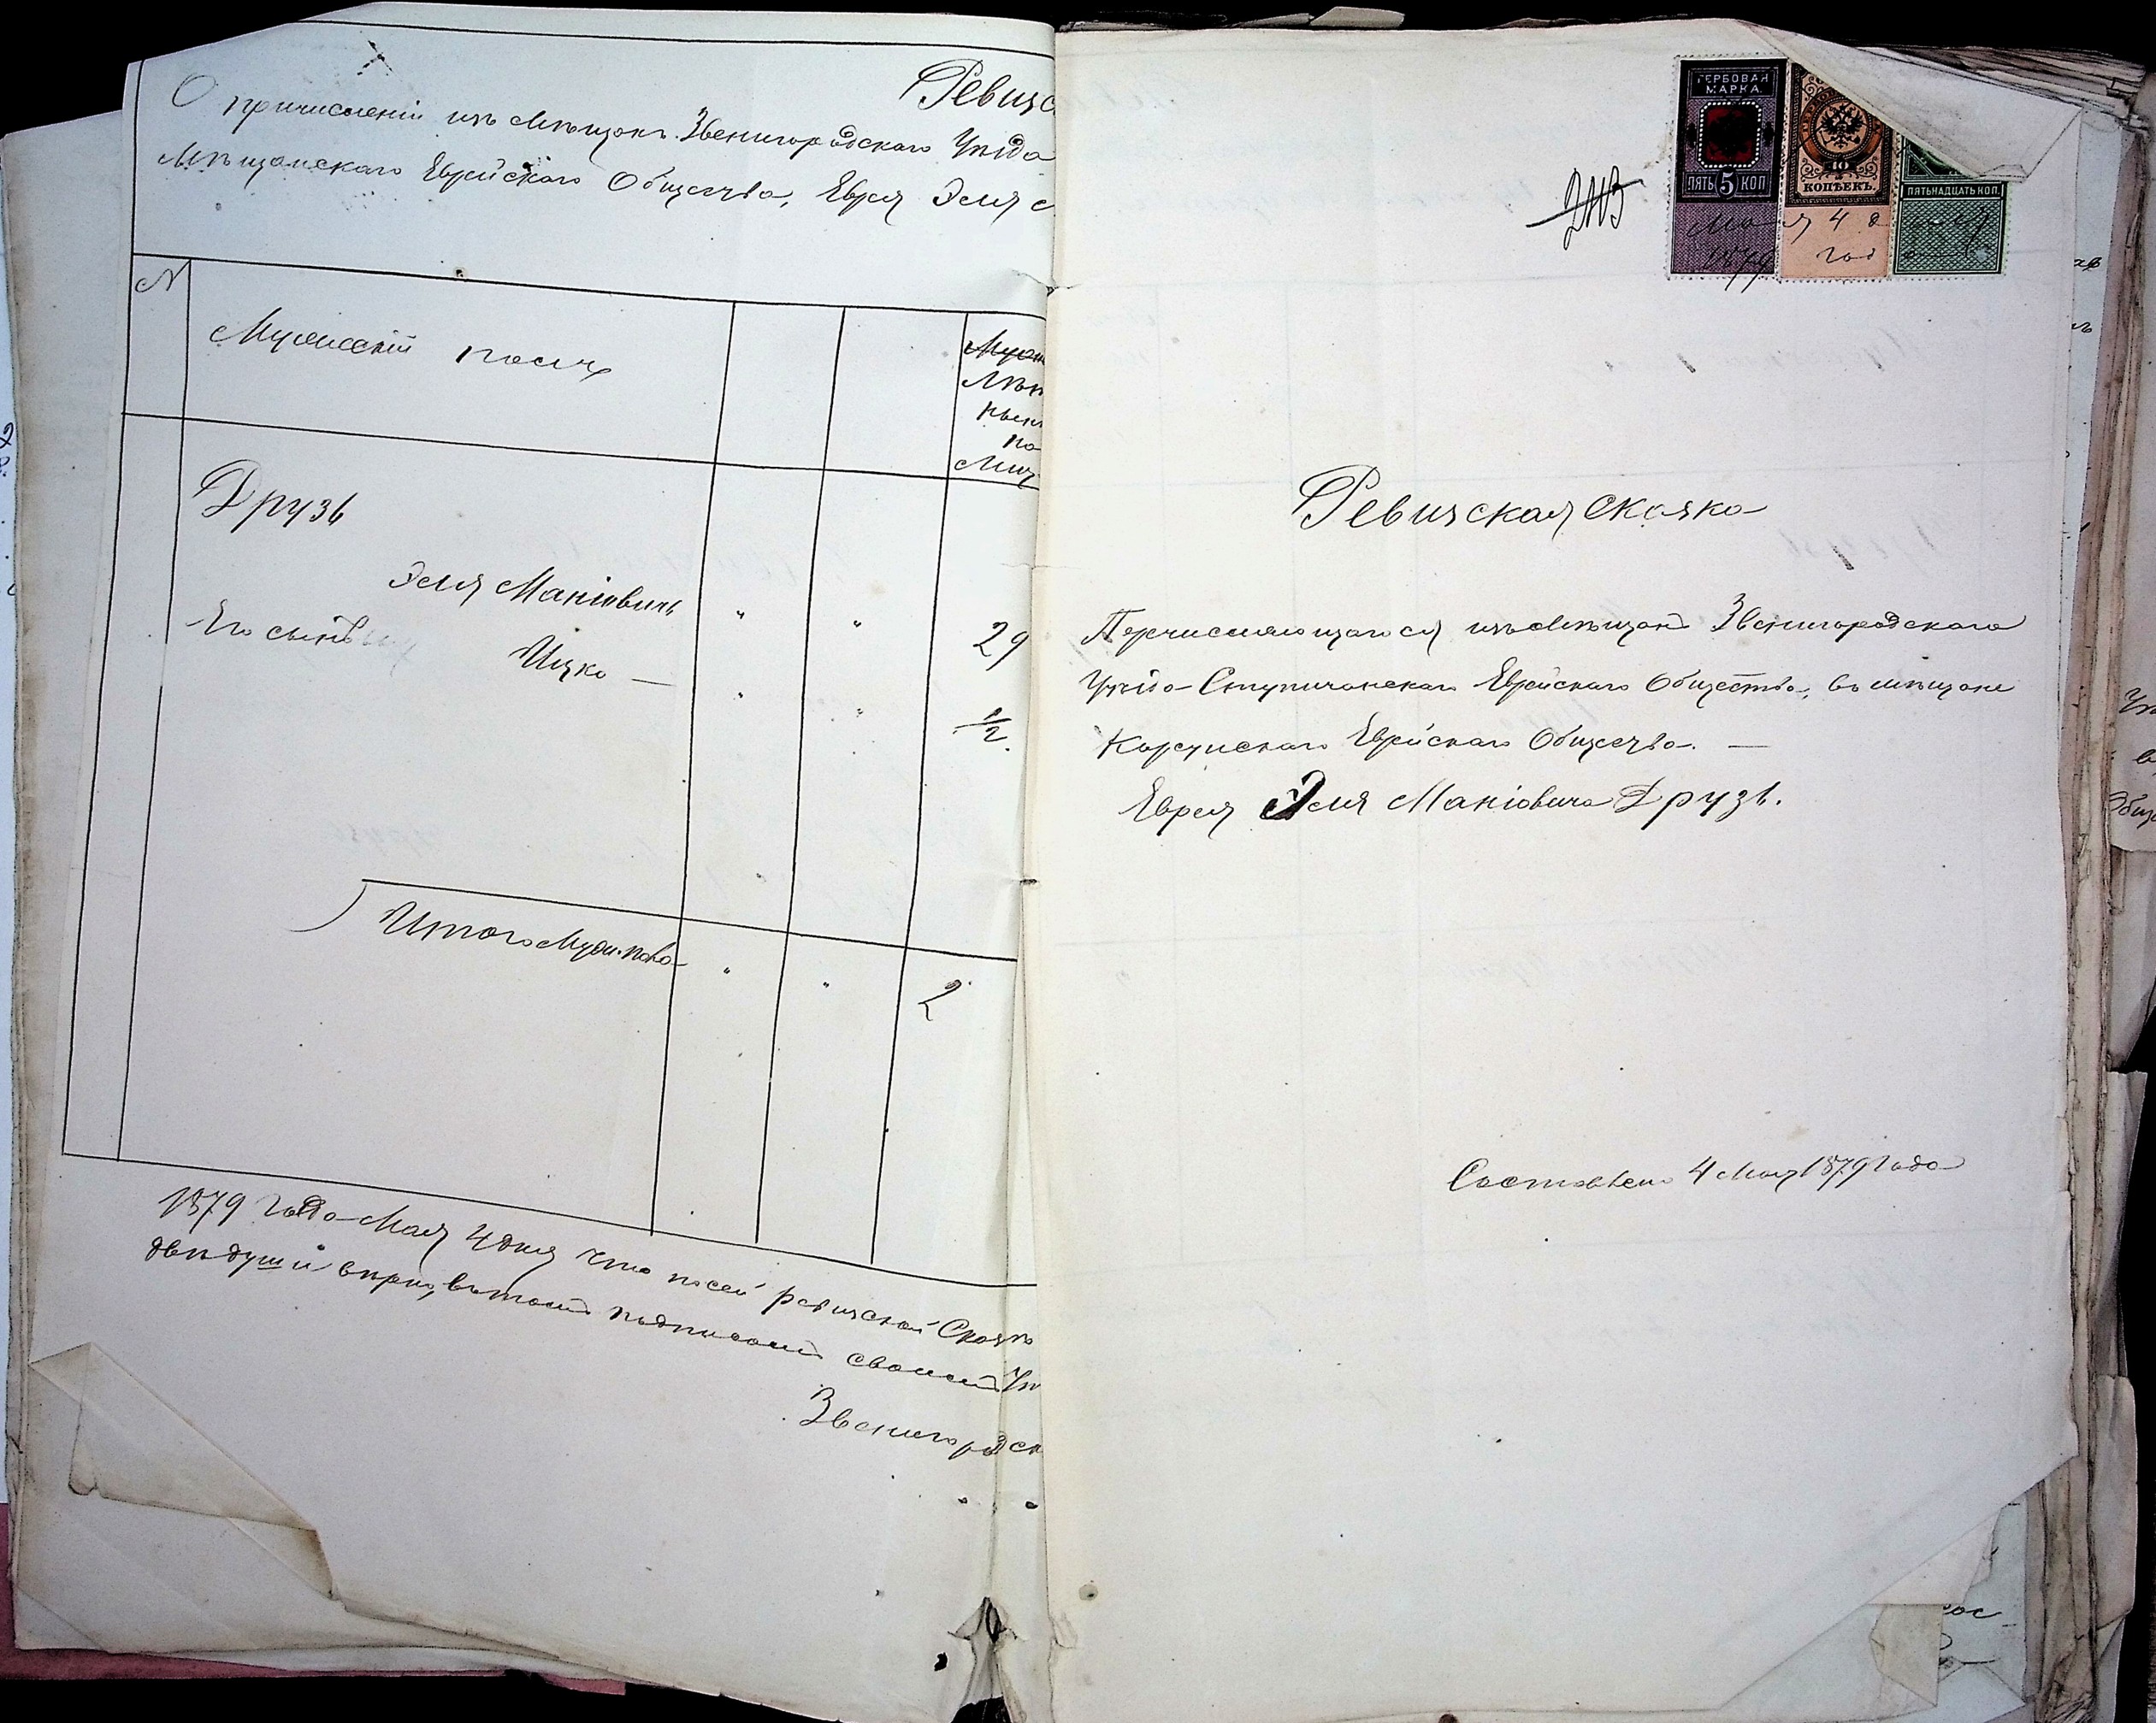 Ревизс
О причислении изъ Мѣщанъ Звенигородскаго Уѣзда
Мѣщанскаго Еврейскаго Общества, Еврея Эля
N
Мужескій полъ
Друзь
Эля Маніовичъ " " 29
Его сынъ
Ицко — " " 1/2
Итого Муж. пола " " 2
1879 Года Мая 4 дня что по сей ревизской Сказкѣ
двѣ души вѣрно, въ томъ подписомъ своимъ
Звенигородск
ГЕРБОВАЯ
МАРКА.
ПЯТЬ 5 КОП
10
КОПѢЕКЪ.
ПЯТЬНАДЦАТЬ КОП.
Мая 4 дня
1879 года
Ревизская Сказка
Перечисляющагося изъ Мѣщанъ Звенигородскаго
Уѣзда Еврейскаго Общества, въ мѣщане
Корсунскаго Еврейскаго Общества. —
Еврея Эля Маніовича Друзь.
Составлено 4 Мая 1879 Года